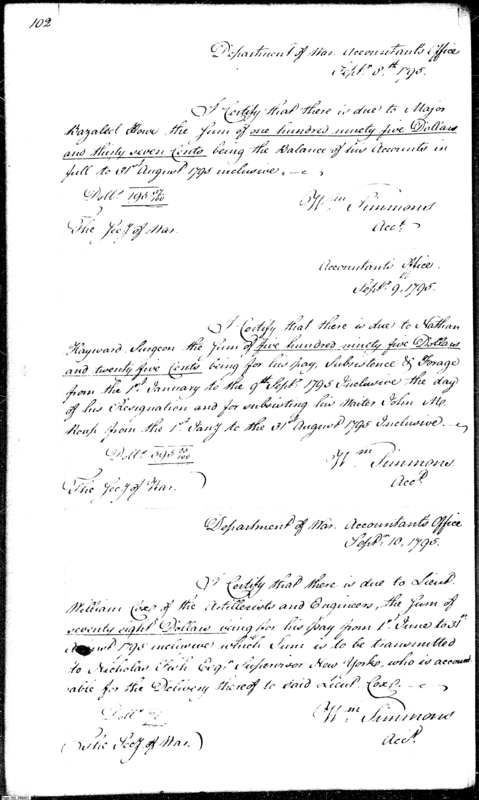 102
Department of War Accountant's Office
Septr. 8th 1795.
I Certify that there is due to Major
Bazaleel Howe the Sum of one hundred ninety five Dollars
and thirty seven Cents being the Balance of his Accounts in
full to 31st August 1795 inclusive
Dolls. 195 37/100
Wm Simmons
Acct.
The Secy of War.
Accountant's Office
Septr. 9. 1795.
I Certify that there is due to Nathan
Hayward Surgeon the Sum of five hundred ninety five Dollars
and twenty five Cents being for his pay, Subsistence & Forage
from the 1st January to the 9th Septr. 1795 Inclusive the day
of his Resignation and for subsisting his Waiter John
from the 1st Jany to the 31st August 1795 Inclusive
Dolls. 595 25/100
Wm Simmons
Acct.
The Secy of War.
Department of War Accountant's Office
Septr. 10. 1795.
I Certify that there is due to Lieut.
William Coxe of the Artillerists and Engineers, the Sum of
seventy eight Dollars being for his pay from 1st June to 31st
August 1795 inclusive which Sum is to be transmitted
to Nicholas Fish Esqr. Supervisor New York, who is account
able for the Delivery thereof to said Lieut. Coxe
Dolls. 78
Wm Simmons
Acct.
The Secy of War.